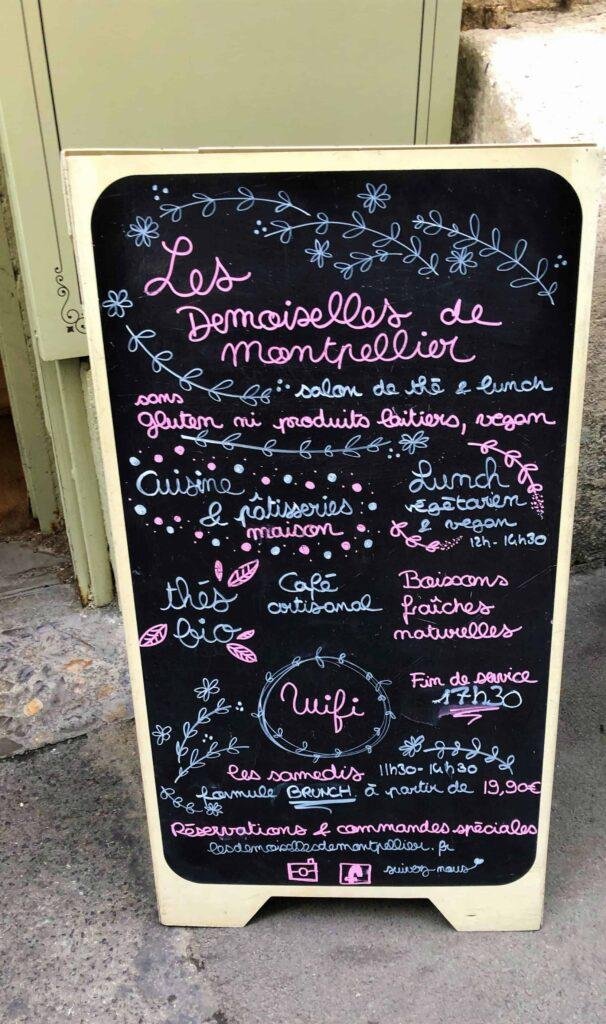 Les
Demoiselles de
montpellier
salon de thé & lunch
sans
gluten ni produits laitiers, vegan
Cuisine
& pâtisseries
maison
Lunch
végétarien
& vegan
12h-14h30
thés
bio
Café
artisanal
Boissons
fraîches
naturelles
Wifi
Fin de service
17h30
les samedis 11h30-14h30
formule BRUNCH à partir de 19,90€
Réservations & commandes spéciales
lesdemoisellesdemontpellier.fr
suivez-nous